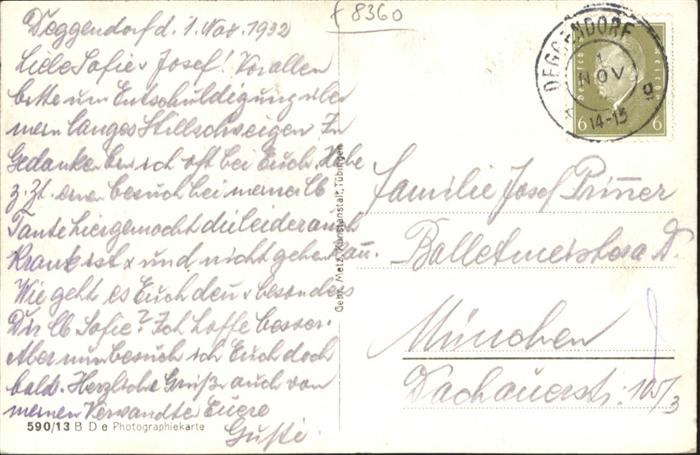 f 8360
Deggendorf d. 1. Nov. 1932
Liebe Sofie u Josef! Vor allem
bitte um Entschuldigung über
mein langes Stillschweigen. In
Gedanken bin ich oft bei Euch. Habe
z. Zt. einen besuch bei meiner lb
Tante hier gemacht die leider auch
Krank ist u und nicht gehen kann.
Wie geht es Euch den u besonders
Dir lb Sofie? Ich hoffe besser.
Aber nun besuch ich Euch doch
bald. Herzliche Grüße auch von
meinen Verwandte Euere
Gusti.
590/13 B D e Photographiekarte
Gebr. Metz, Kunstanstalt, Tübingen
DEGGENDORF
1
NOV
14-15
g
Deutsches Reich
6 6
Familie Josef
Balletmeister a. D.
München
Dachauerstr: 105/3